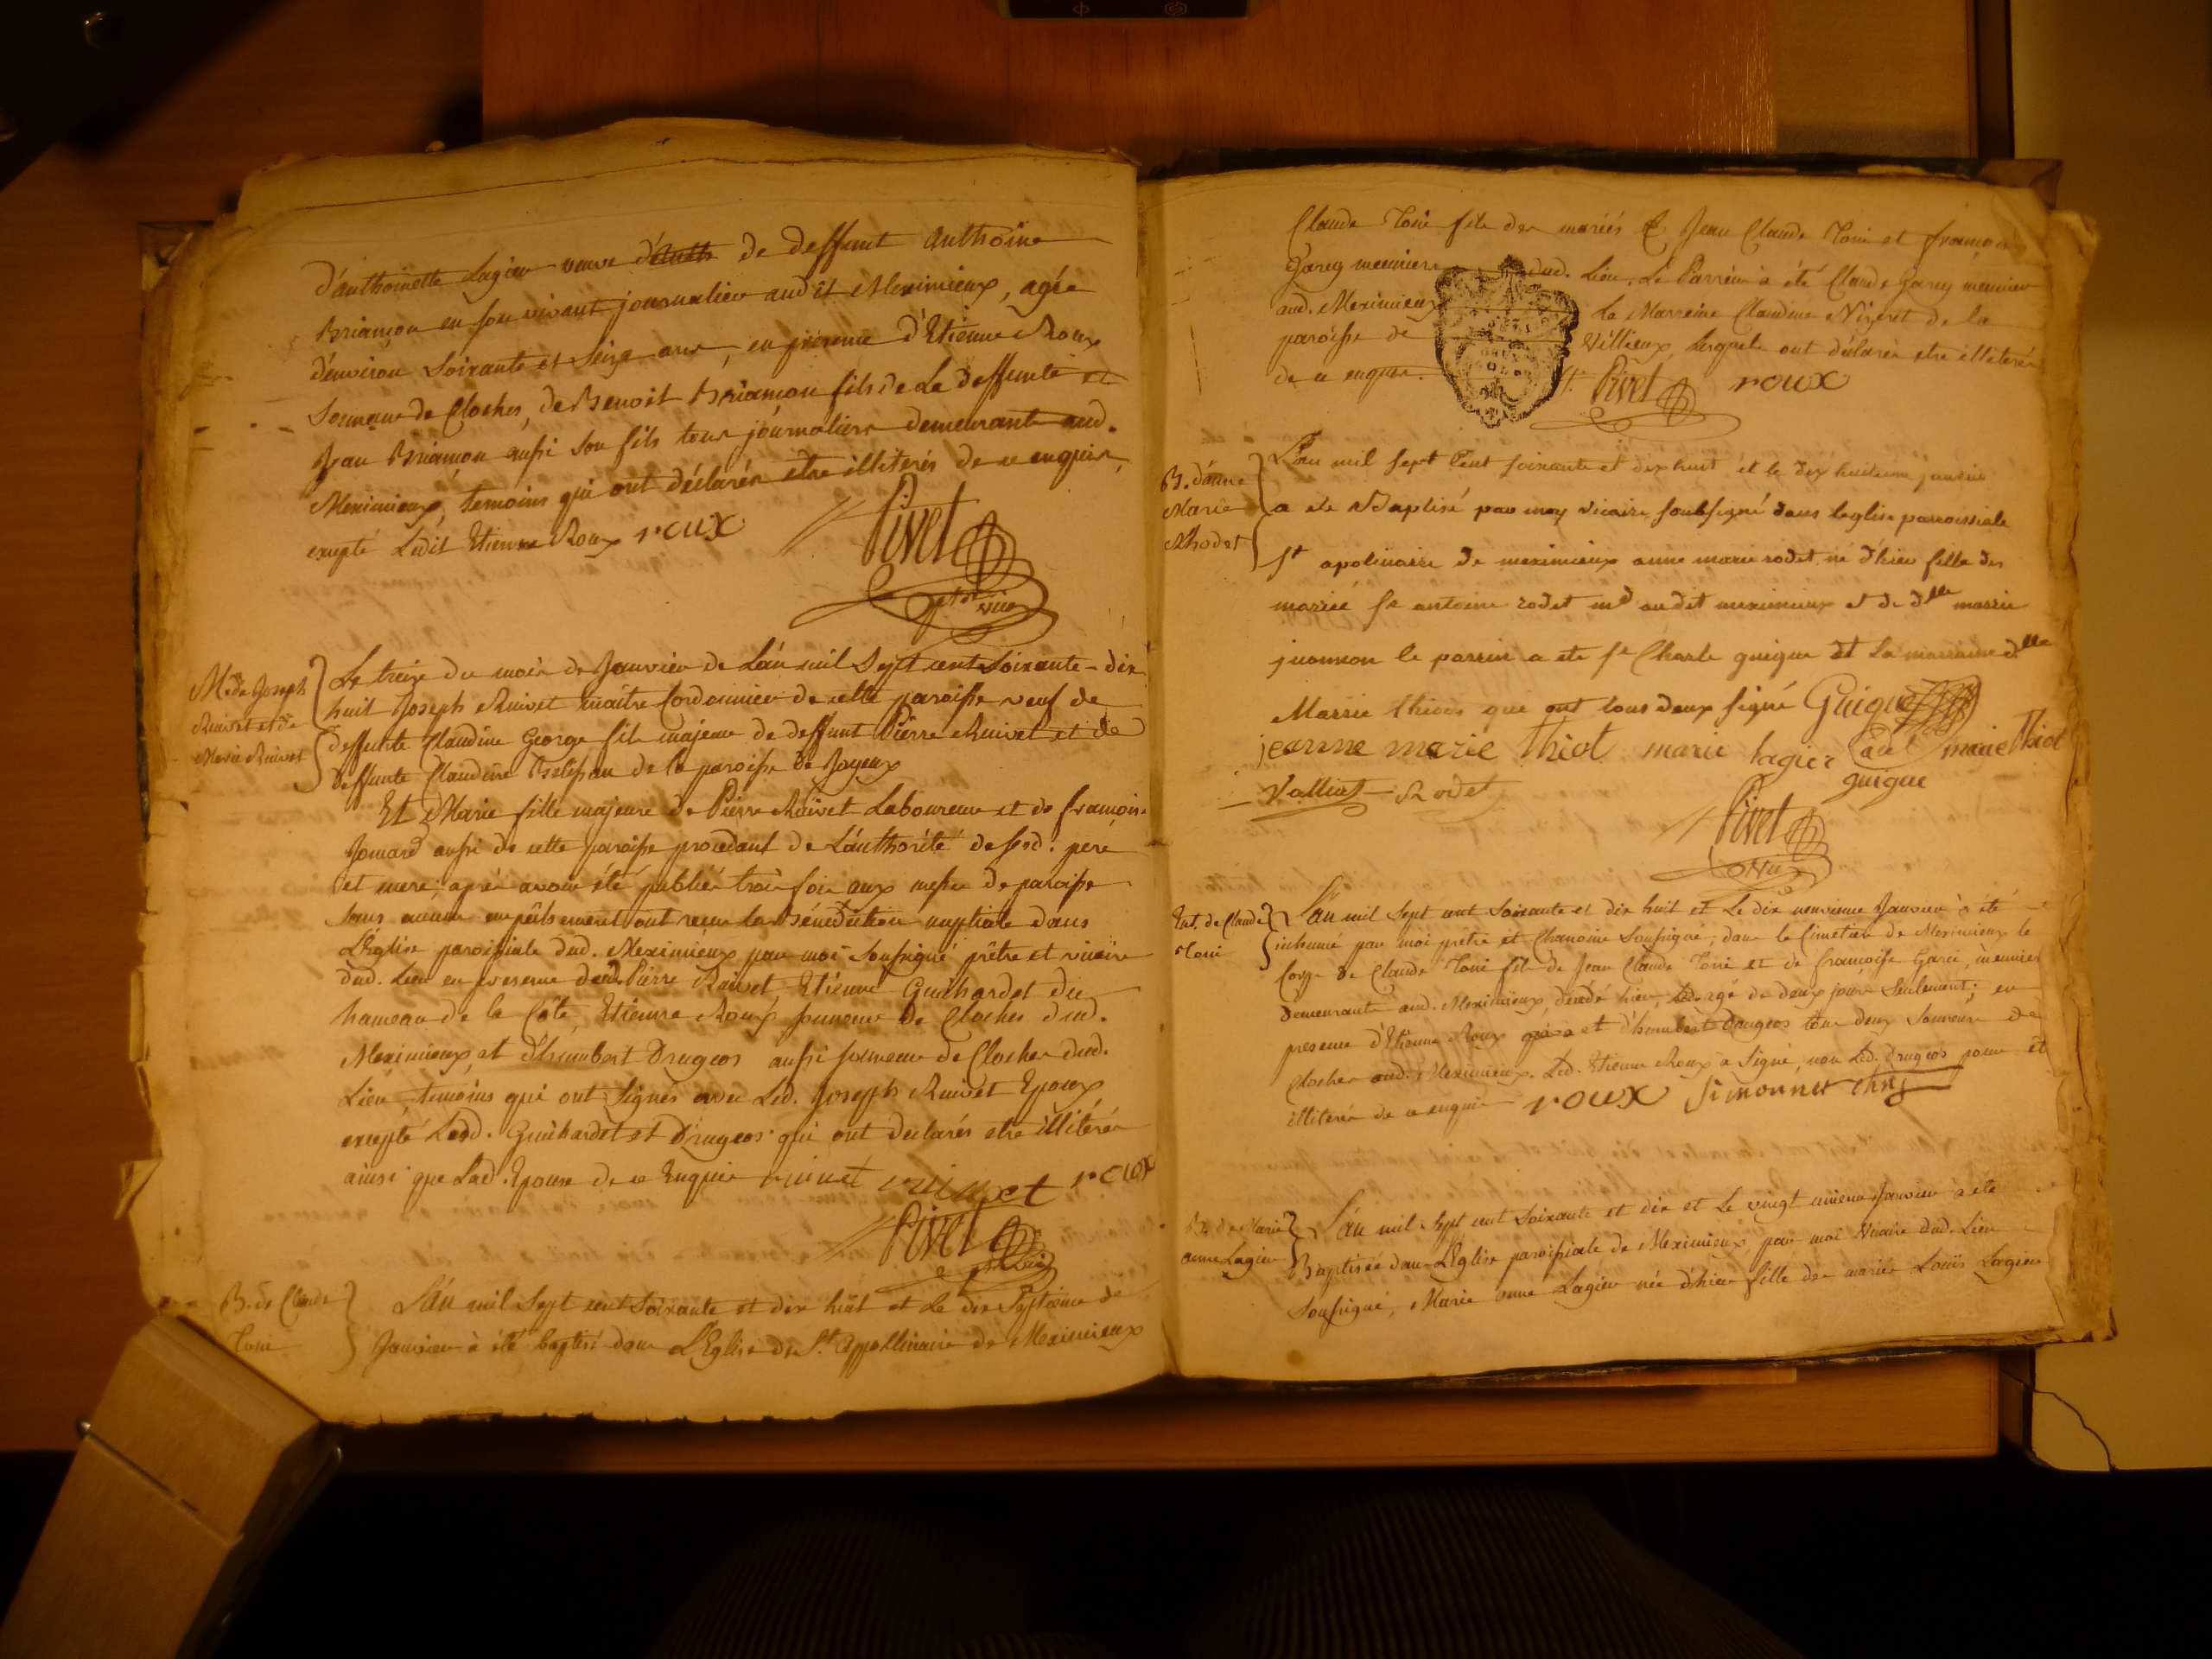 d'anthoinette Lagier veuve de deffunt Anthoine
Briançon en son vivant journalier audit Meximieux, agée
d'environ soixante et seize ans, en présence d'Etienne Roux
sonneur de Cloches, de Benoit Briançon fils de La deffunte et
Jean Briançon aussi son fils tous journaliers demeurants aud.
Meximieux, temoins qui ont déclarés etre illiterés de ce enquis,
excepté Ledit Etienne Roux roux
Pivet
ptre vic
M. de Joseph
Ruivet et de
Marie Ruivet
Le treize du mois de Janvier de L'an mil Sept cent Soixante-dix
huit Joseph Ruivet maitre Cordonnier de cette paroisse veuf de
deffunte Claudine George fils majeur de deffunt Pierre Ruivet et de
deffunte Claudine de la paroisse de Joyeux
Et Marie fille majeure de Pierre Ruivet Laboureur et de françoise
Jomard aussi de cette paroisse procedant de L'authorité de sesd. pere
et mere, après avoir été publiés trois fois aux messes de paroisse
sans aucun empêchement ont reçu la Bénédiction nuptiale dans
L'Eglise paroissiale dud. Meximieux par moi soussigné prêtre et vicaire
dud. Lieu en presence dud. Pierre Ruivet Etienne Guichardet du
hameau de la Côte, Etienne Roux sonneur de Cloches dud.
Meximieux, et d'humbert Drugeos aussi sonneur de Cloches dud.
Lieu, temoins qui ont Signés avec Led. Joseph Ruivet Epoux
excepté Lesd. Guichardet et Drugeos qui ont declarés etre illitérés
ainsi que Lad. Epouse de ce Enquis ruivet ruivet roux
Pivet
ptre vic
B. de Claude
Toni
L'an mil Sept cent Soixante et dix huit et Le dix Septieme de
Janvier à été baptisé dans L'Eglise de St. Appollinaire de Meximieux
Claude Toni fils des mariés Jean Claude Toni et françoise
Garcy meuniers dud. Lieu. Le Parrein à été Claude Garcy meunier
aud. Meximieux La Marreine Claudine Nizeret de la
paroisse de Villieux, Lesquels ont déclarés etre illiterés
de ce enquis. Pivet roux
B. d'anne
Marie
Rhodet
L'an mil sept Cent soixante et dix huit et le dix huitieme janvier
a été Baptisé par moy vicaire soubsigné dans leglise parroissiale
st apolinaire de meximieux anne marie rodet né d'hier fille des
mariée sr antoine rodet md audit meximieux et de dlle marie
juomon le parrin a ete sr Charle guigue et La marraine dlle
Marrie thiot qui ont tous deux signé Guigue
jeanne marie Thiot marie lagier marie Thiot
guigue
Valliat Rodet
Pivet
vic
Ent. de Claude
Toni
L'an mil Sept cent Soixante et dix huit et Le dix neuvieme Janvier à été
inhumé par moi prêtre et Chanoine Soussigné, dans le Cimetiere de Meximieux le
Corps de Claude Toni fils de Jean Claude Toni et de françoise Garci, meuniers
demeurants aud. Meximieux, décédé hier, agé de deux jours Seulement; en
presence d'Etienne Roux et d'humbert Drugeos tous deux Sonneurs de
Cloches aud. Meximieux. Led. Etienne Roux à Signé, non Led. Drugeos pour etre
illiteré de ce enquis roux Simonnet chne
B. de Marie
anne Lagier
L'an mil Sept cent Soixante et dix et Le vingt unieme Janvier à été
Baptisée dans L'Eglise paroissiale de Meximieux par moi Vicaire dud. Lieu
Soussigné, Marie anne Lagier née d'hier fille des mariés Louis Lagier